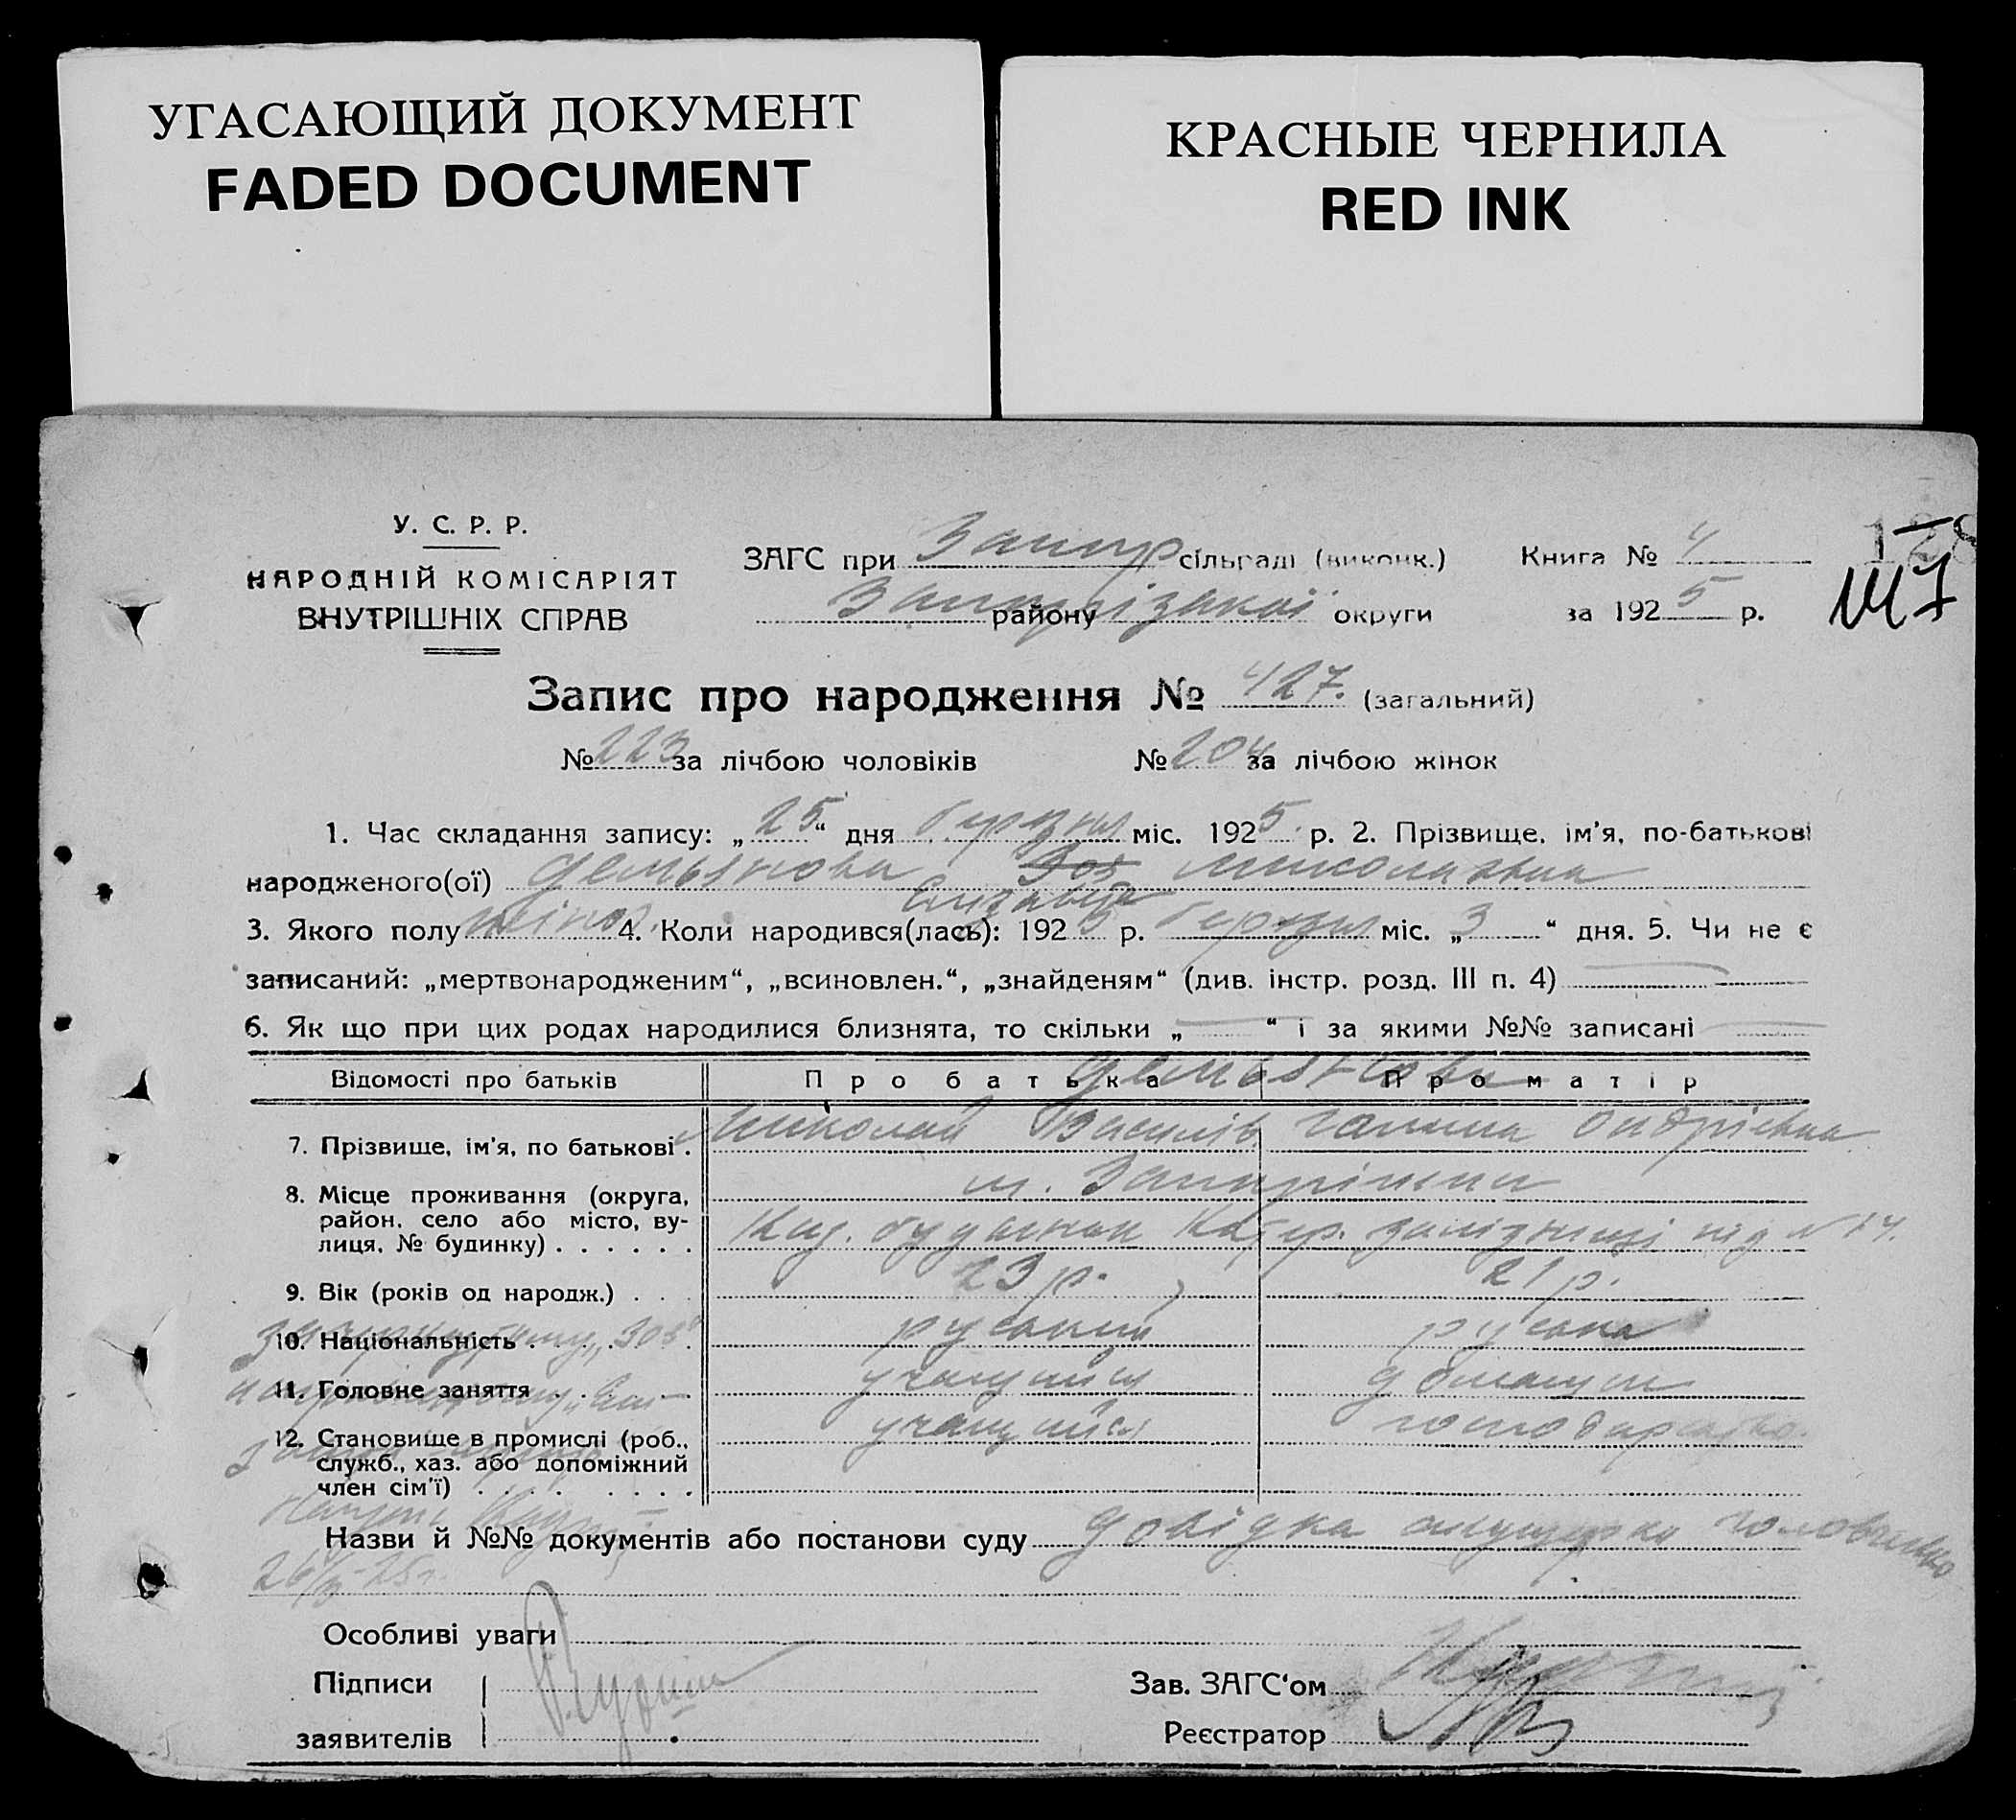 УГАСАЮЩИЙ ДОКУМЕНТ
FADED DOCUMENT
КРАСНЫЕ ЧЕРНИЛА
RED INK
У. С. Р. Р.
НАРОДНІЙ КОМІСАРІЯТ
ВНУТРІШНІХ СПРАВ
ЗАГС при Запор сільраді (виконк.) Книга № 4
району Запорізької округи за 1925 р.
Запис про народження № 427. (загальний)
№ 223 за лічбою чоловіків № 204 за лічбою жінок
1. Час складання запису: „25“ дня березня міс. 1925 р. 2. Прізвище, ім'я, по-батькові
народженого(ої) Демьянова Зоя Миколаївна
Єлизавета
3. Якого полу жіноч. 4. Коли народився(лась): 1925 р. березня міс. „3“ дня. 5. Чи не є
записаний: „мертвонародженим“, „всиновлен.“, „знайденям“ (див. інстр. розд. III п. 4)
6. Як що при цих родах народилися близнята, то скільки „ “ і за якими №№ записані
Відомості про батьків Про батька Про матір
Демьянови
7. Прізвище, ім'я, по батькові . Миколай Василів. Галина Андріевна
8. Місце проживання (округа, м. Запоріжжя
район, село або місто, ву-
лиця, № будинку) . . . . . . будинок залізниці під № 14.
9. Вік (років од народж.) . . . 23 р. 21 р.
10. Національність . . . . . . руський руська
11. Головне заняття . . . . . учащийся домашнє
12. Становище в промислі (роб., учащийся господарство.
служб., хаз. або допоміжний
член сім'ї) . . . . . . . .
Назви й №№ документів або постанови суду довідка акушерки
Особливі уваги
Підписи
заявителів
Зав. ЗАГС'ом
Реєстратор